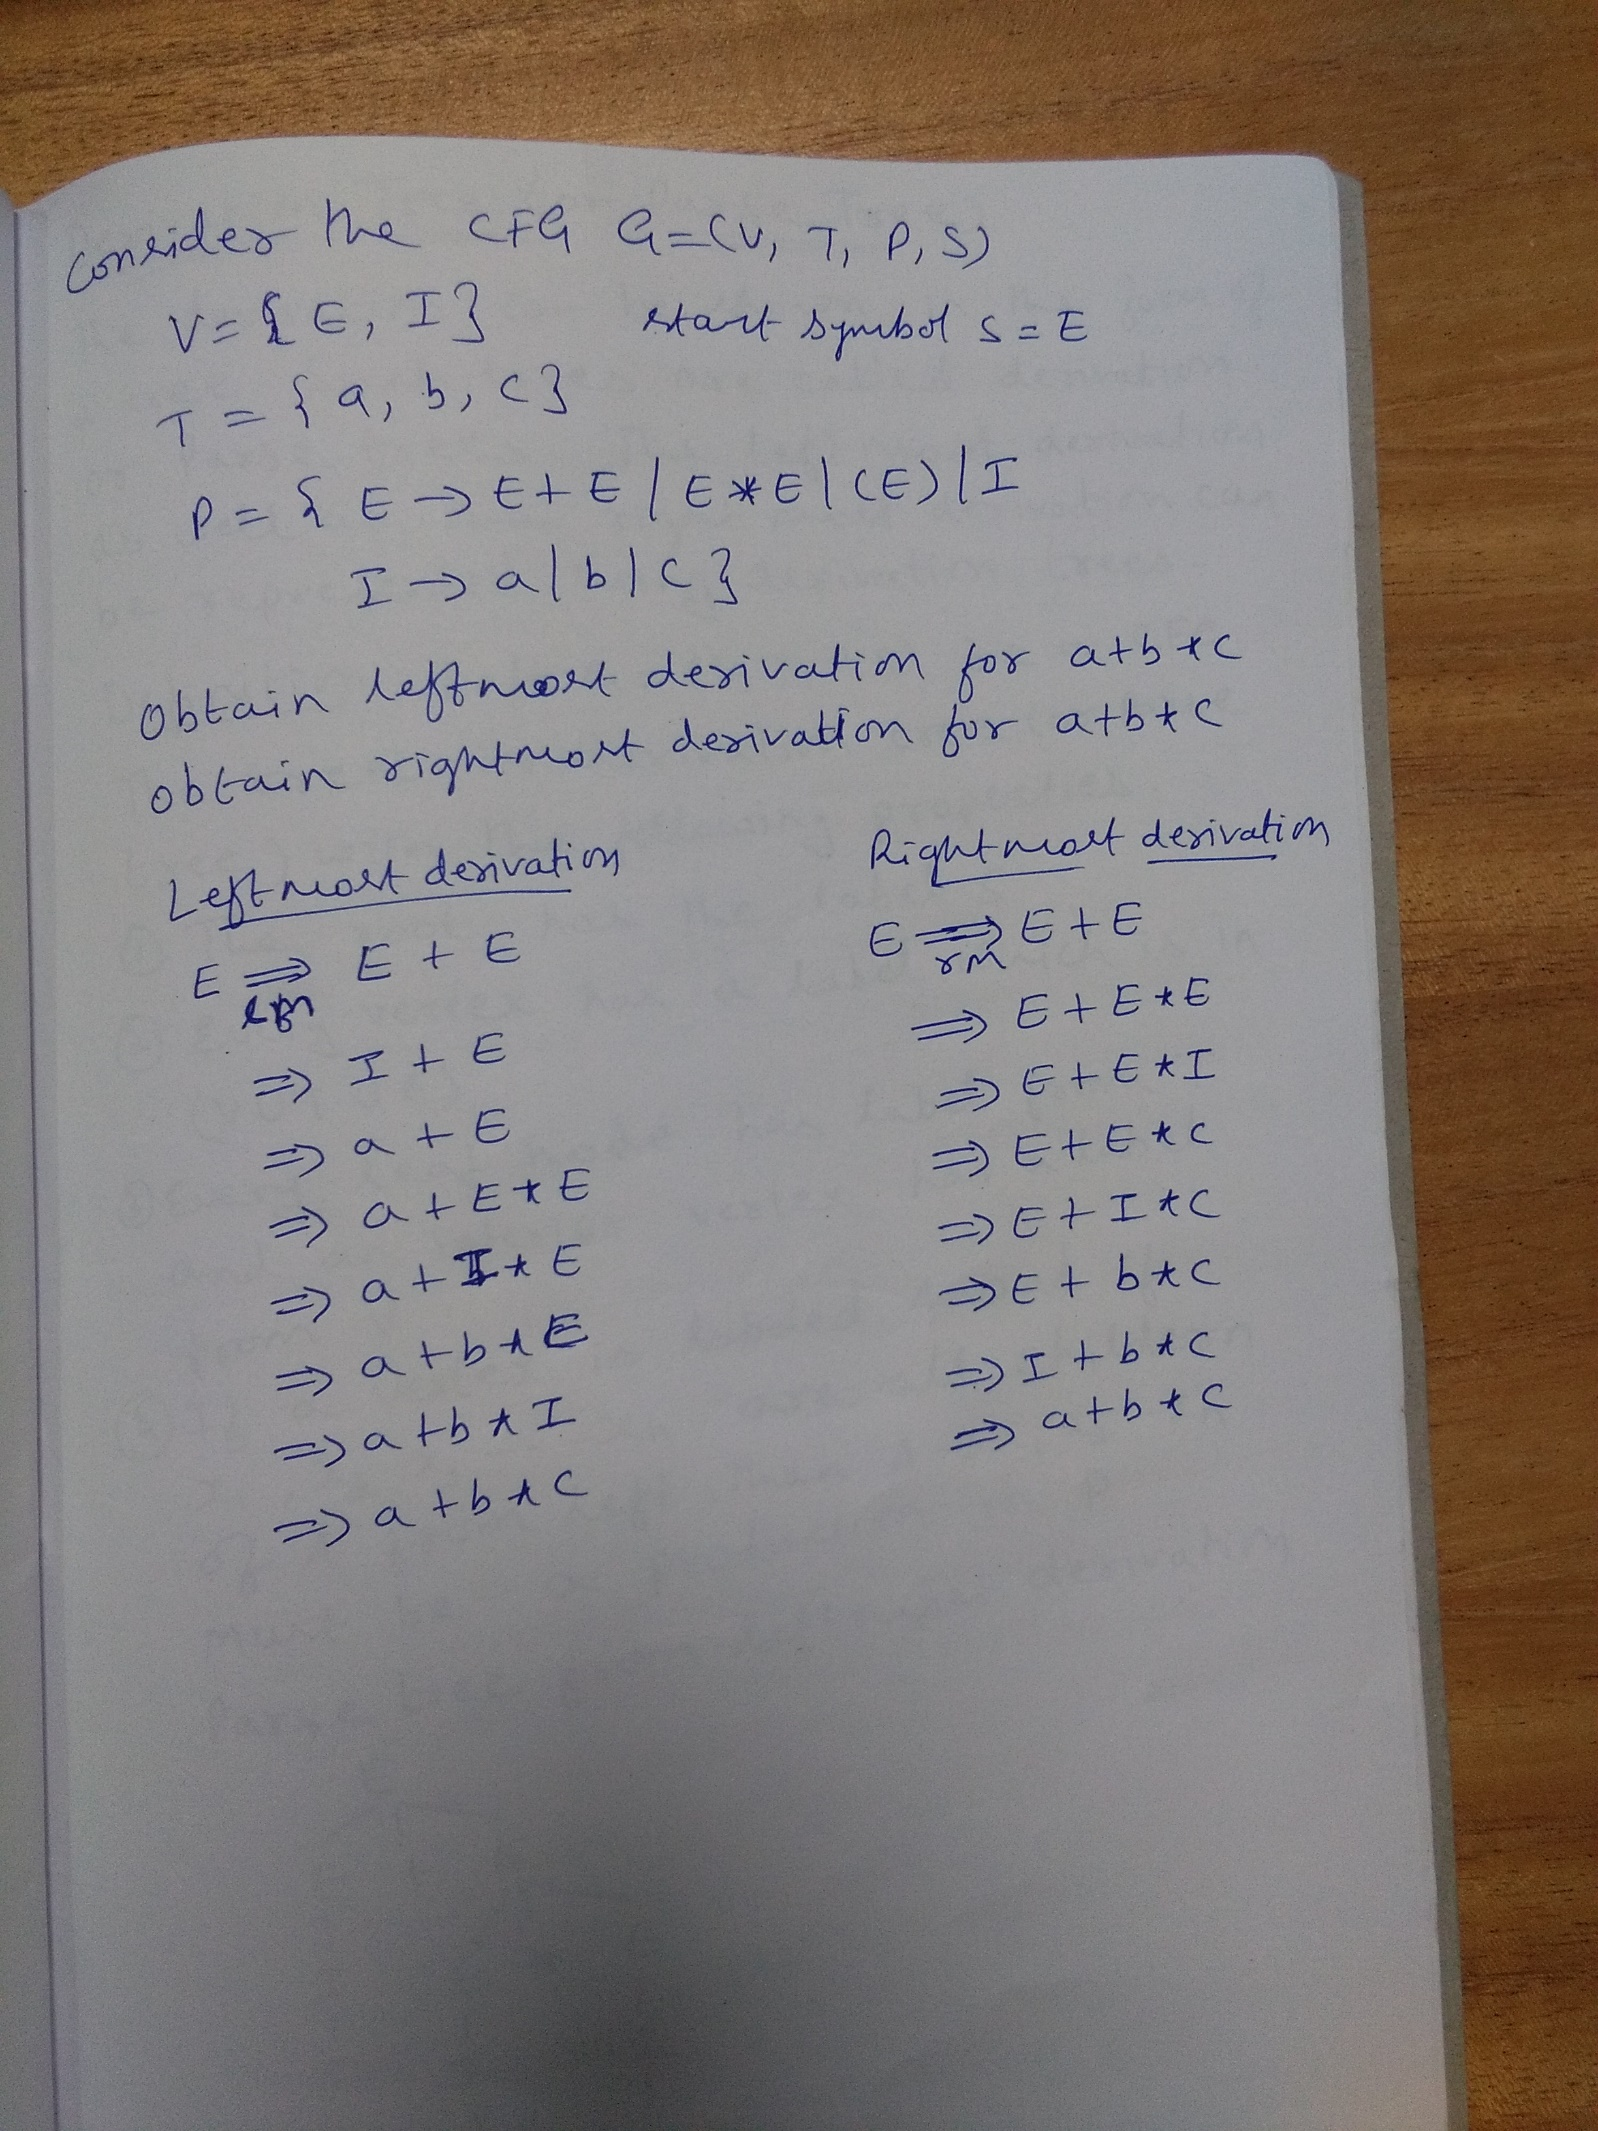 Consider the CFG G=(V, T, P, S)
V={E, I} start symbol S=E
T={a, b, c}
P={E→E+E|E*E|(E)|I
I→a|b|c}
Obtain leftmost derivation for a+b*c
Obtain rightmost derivation for a+b*c
Leftmost derivation
E ⇒ E + E
lm
⇒ I + E
⇒ a + E
⇒ a + E * E
⇒ a + I * E
⇒ a + b * E
⇒ a + b * I
⇒ a + b * c
Rightmost derivation
E ⇒ E + E
rm
⇒ E + E * E
⇒ E + E * I
⇒ E + E * c
⇒ E + I * c
⇒ E + b * c
⇒ I + b * c
⇒ a + b * c